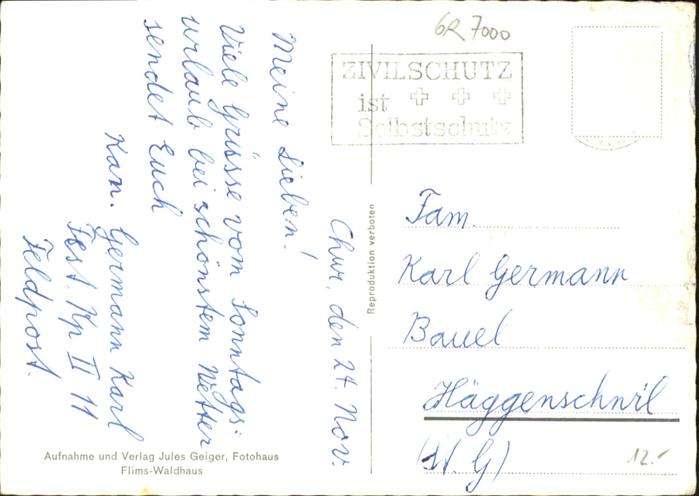 GR 7000
ZIVILSCHUTZ
ist
Selbstschutz
Chur, den 24. Nov.
Meine Lieben!
Viele Grüsse vom Sonntags-
urlaub bei schönstem Wetter
sendet Euch
Kan. Germann Karl
Fest. Kp II 11
Feldpost.
Reproduktion verboten
Fam.
Karl Germann
Bauel
Häggenschwil
(St. G)
12.-
Aufnahme und Verlag Jules Geiger, Fotohaus
Flims-Waldhaus